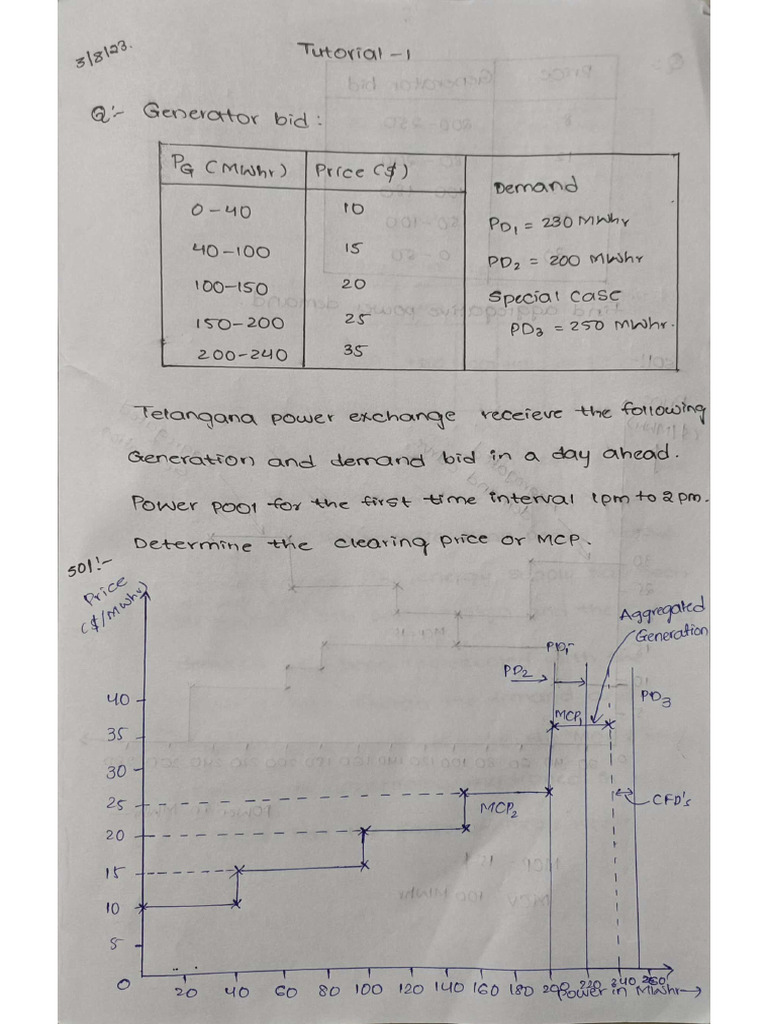 3/8/23.
Tutorial -1
Q:- Generator bid :
PG (MWhr) Price ($) Demand
0-40 10 PD1 = 230 MWhr
40-100 15 PD2 = 200 MWhr
100-150 20 Special case
150-200 25 PD3 = 250 MWhr.
200-240 35
Telangana power exchange receieve the following
Generation and demand bid in a day ahead.
Power pool for the first time interval 1pm to 2pm.
Determine the clearing price or MCP.
Sol:-
Price
($/MWhr)
Aggregated
Generation
PD1
PD2
PD3
40
MCP1
35
30
CFD's
25
MCP2
20
15
10
5
0
20 40 60 80 100 120 140 160 180 200 220 240 260
Power in MWhr→